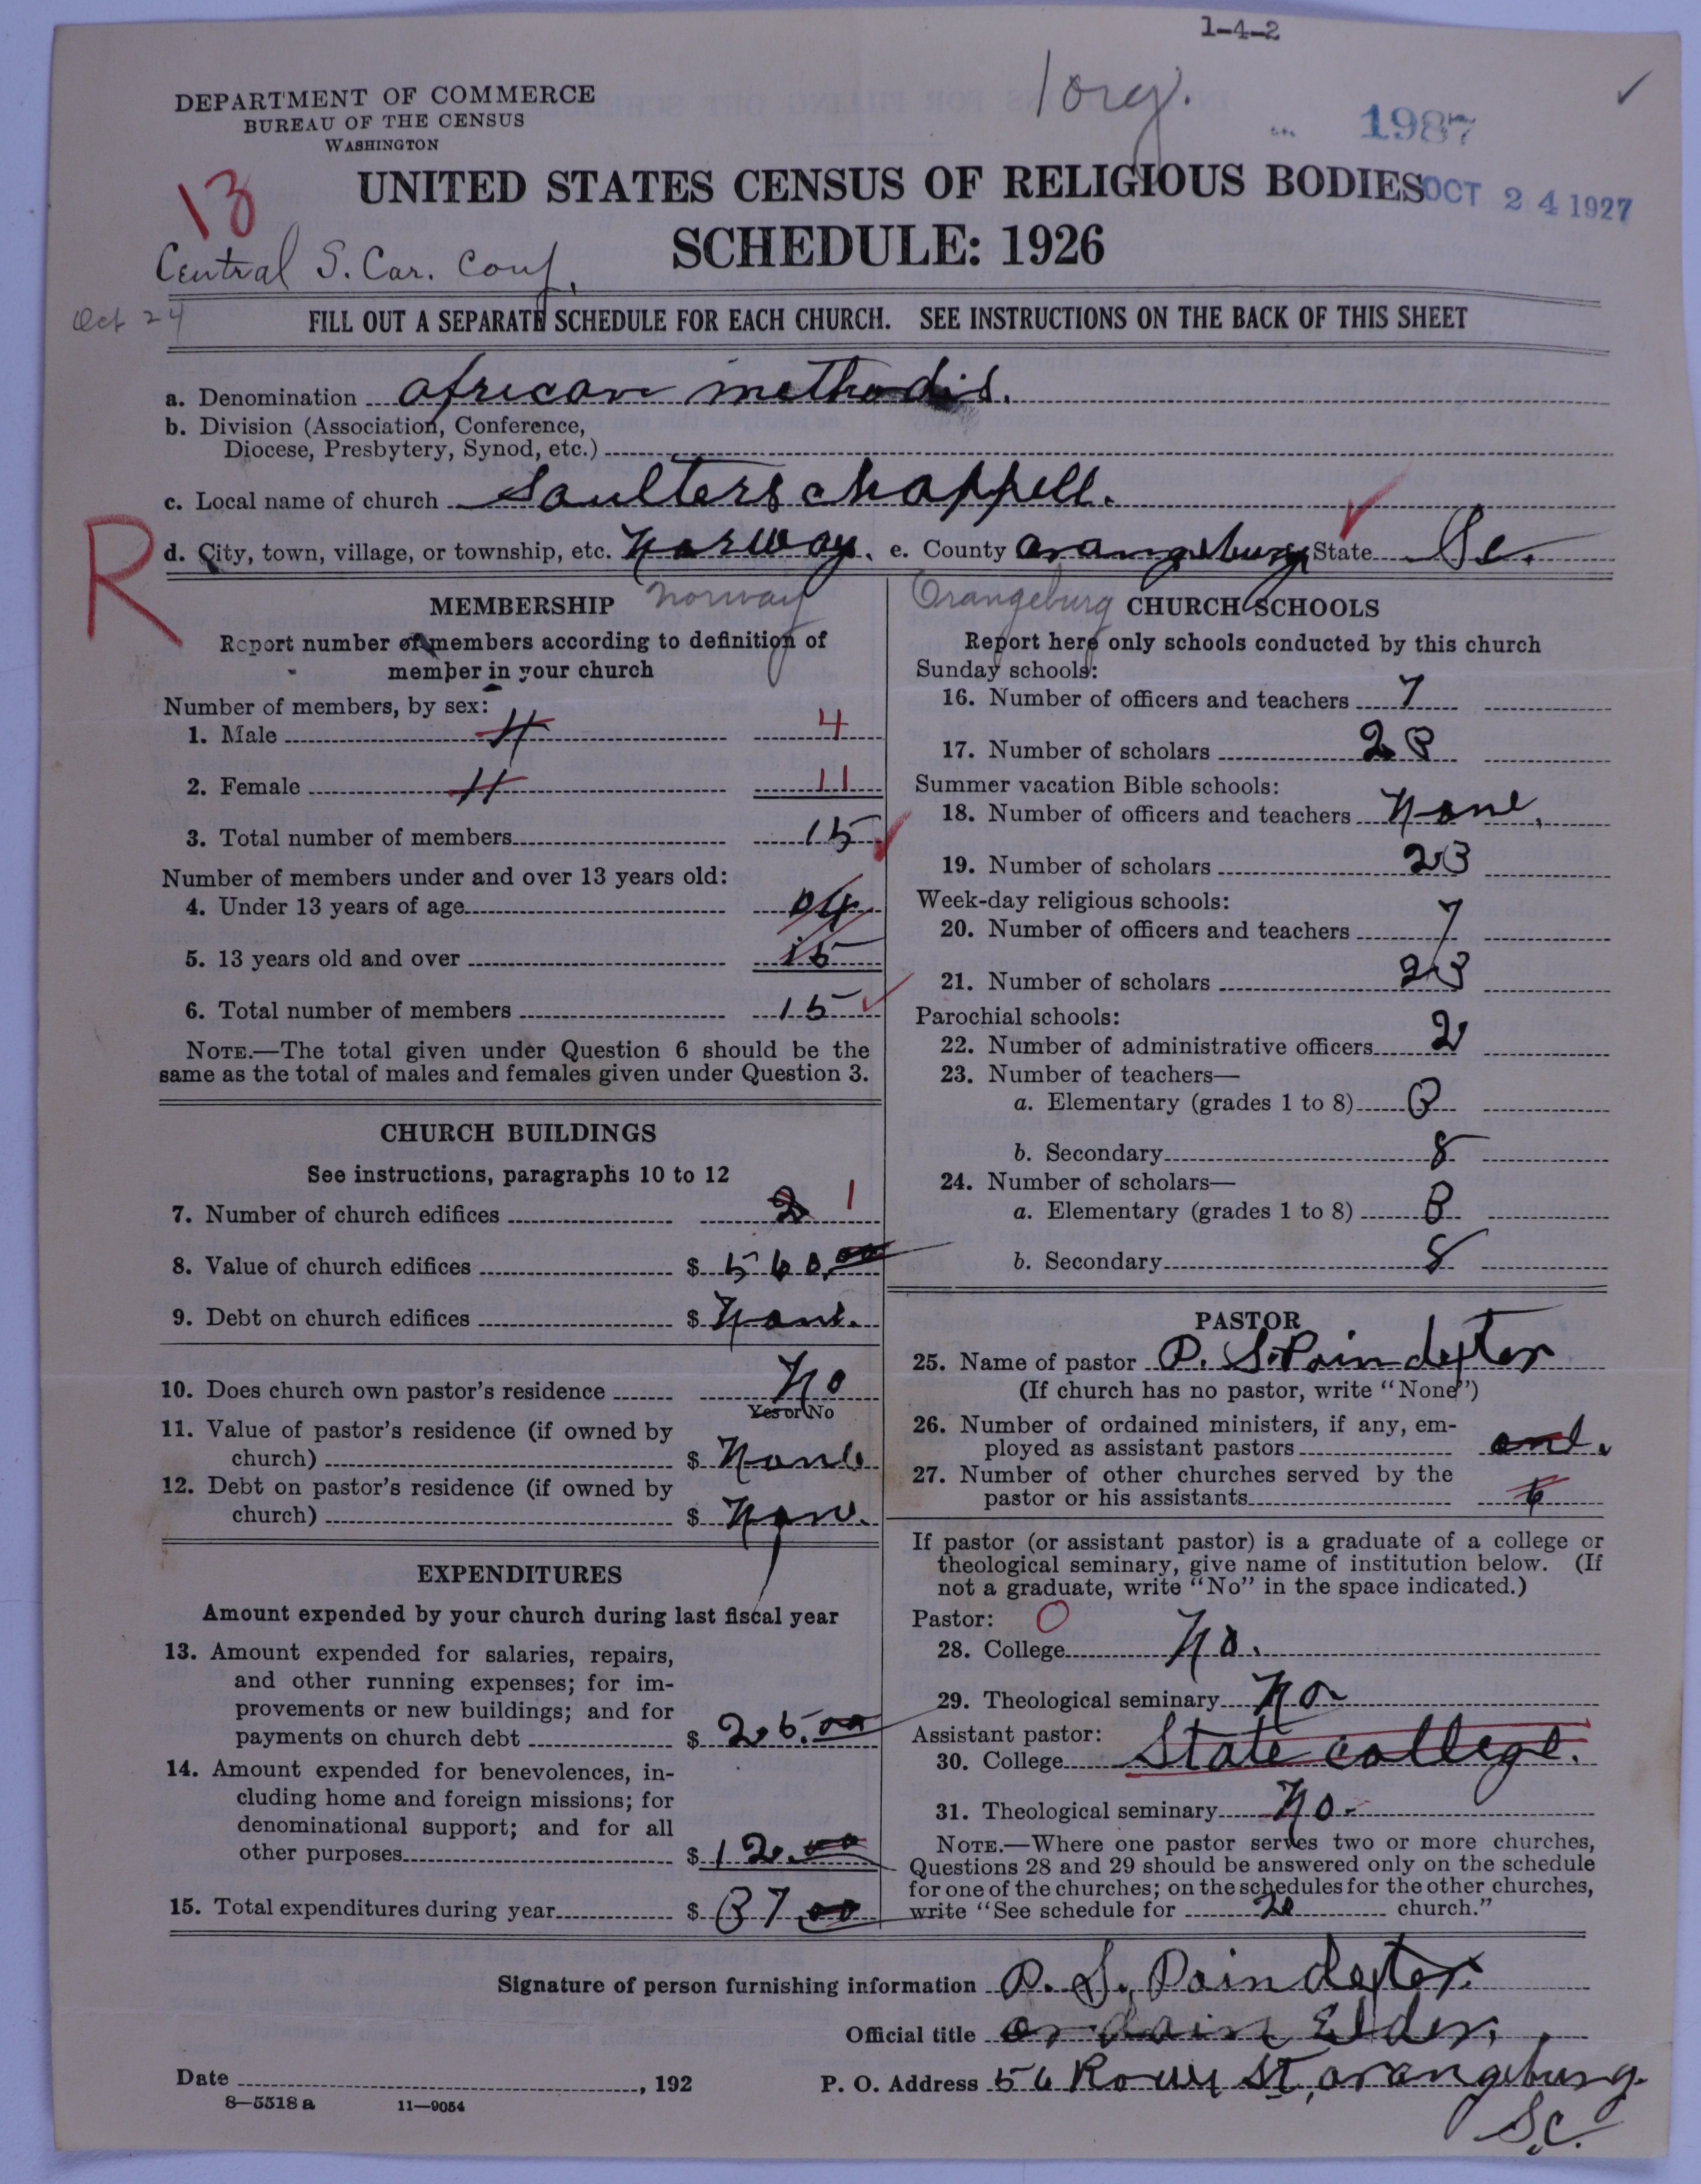 1-4-2
1 org.
DEPARTMENT OF COMMERCE
BUREAU OF THE CENSUS
WASHINGTON
1987
13
UNITED STATES CENSUS OF RELIGIOUS BODIES
OCT 24 1927
SCHEDULE: 1926
Central S. Car. Conf.
Oct 24
FILL OUT A SEPARATE SCHEDULE FOR EACH CHURCH. SEE INSTRUCTIONS ON THE BACK OF THIS SHEET
a. Denomination african methodis.
b. Division (Association, Conference,
Diocese, Presbytery, Synod, etc.)
c. Local name of church Saulters chappell.
R
d. City, town, village, or township, etc. Norway. e. County orangeburg State Sc.
MEMBERSHIP Norway
Report number of members according to definition of
member in your church
Number of members, by sex:
1. Male 4 4
2. Female 11 11
3. Total number of members 15
Number of members under and over 13 years old:
4. Under 13 years of age 04
5. 13 years old and over 15
6. Total number of members 15
NOTE.—The total given under Question 6 should be the
same as the total of males and females given under Question 3.
CHURCH BUILDINGS
See instructions, paragraphs 10 to 12
7. Number of church edifices 2 1
8. Value of church edifices $ 560.00
9. Debt on church edifices $ None.
10. Does church own pastor's residence No
Yes or No
11. Value of pastor's residence (if owned by
church) $ None
12. Debt on pastor's residence (if owned by
church) $ Non.
EXPENDITURES
Amount expended by your church during last fiscal year
13. Amount expended for salaries, repairs,
and other running expenses; for im-
provements or new buildings; and for
payments on church debt $ 25.00
14. Amount expended for benevolences, in-
cluding home and foreign missions; for
denominational support; and for all
other purposes $ 12.00
15. Total expenditures during year $ 37.00
Orangeburg CHURCH SCHOOLS
Report here only schools conducted by this church
Sunday schools:
16. Number of officers and teachers 7
17. Number of scholars 23
Summer vacation Bible schools:
18. Number of officers and teachers None.
19. Number of scholars 23
Week-day religious schools:
20. Number of officers and teachers 7
21. Number of scholars 23
Parochial schools:
22. Number of administrative officers 2
23. Number of teachers—
a. Elementary (grades 1 to 8) 3
b. Secondary 8
24. Number of scholars—
a. Elementary (grades 1 to 8) 3
b. Secondary 8
PASTOR
25. Name of pastor P. S. Poindexter
(If church has no pastor, write "None")
26. Number of ordained ministers, if any, em-
ployed as assistant pastors one.
27. Number of other churches served by the
pastor or his assistants 6
If pastor (or assistant pastor) is a graduate of a college or
theological seminary, give name of institution below. (If
not a graduate, write "No" in the space indicated.)
Pastor: O
28. College No.
29. Theological seminary No
Assistant pastor:
30. College State college.
31. Theological seminary No.
NOTE.—Where one pastor serves two or more churches,
Questions 28 and 29 should be answered only on the schedule
for one of the churches; on the schedules for the other churches,
write "See schedule for church."
Signature of person furnishing information P. S. Poindexter.
Official title ordain Elder.
Date , 192
P. O. Address 56 St, orangeburg.
S.C.
8—5518 a 11—9054